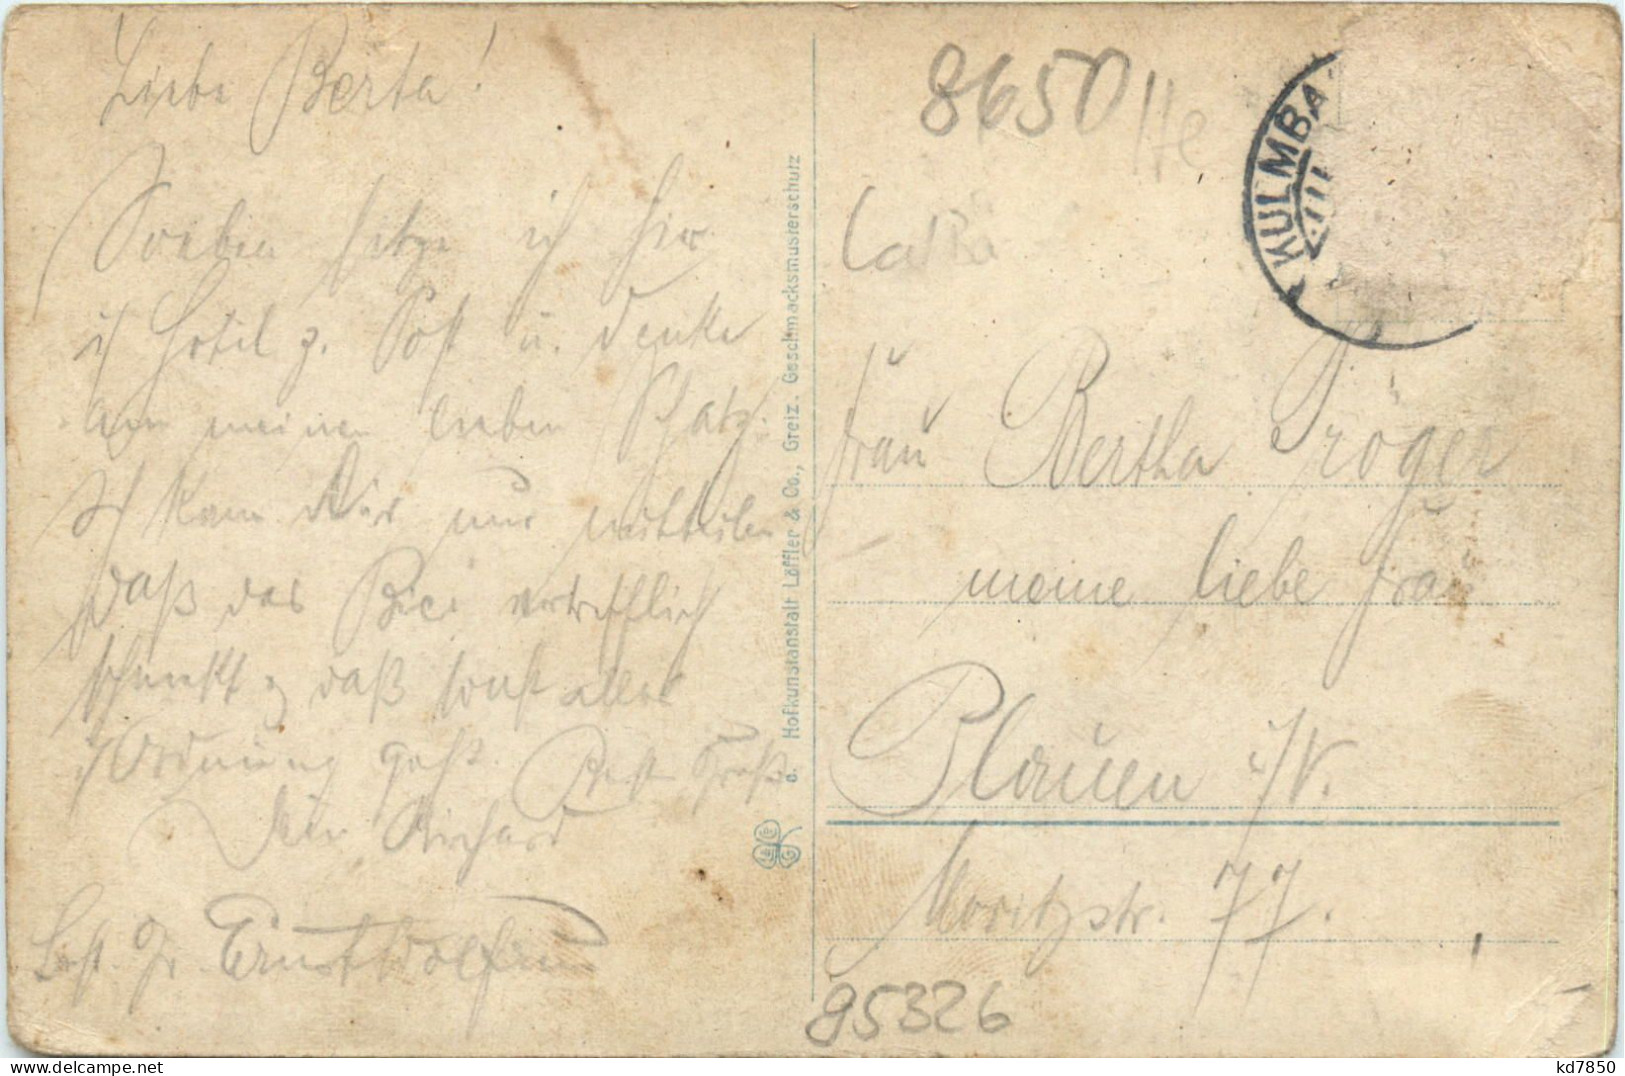 Liebe Berta!
Soeben sitze ich hier
i/ Hotel z. Post u. denke
an meinen lieben Schatz.
Ich kann Dir nur mitteilen
daß das Bier vortrefflich
schmeckt u. daß sonst alles
i/ Ordnung geht. Best Gruß
Dein Richard
Best. Gr. Ernst Wolfrum
d. Hofkunstanstalt Löffler & Co., Greiz. Geschmacksmusterschutz
8650
He
KULMBA
Frau Bertha Pröger
meine liebe Frau
Plauen i/V.
Moritzstr. 77.
95326
kd7850